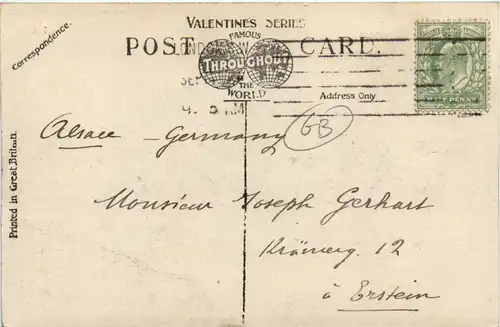 VALENTINES SERIES
FAMOUS
POST CARD.
THROUGHOUT
THE
WORLD
SEP
Correspondence.
Address Only
Printed in Great Britain
63
Alsace - Germany
Monsieur Joseph Gerhart
Krämerg. 12
à Erstein